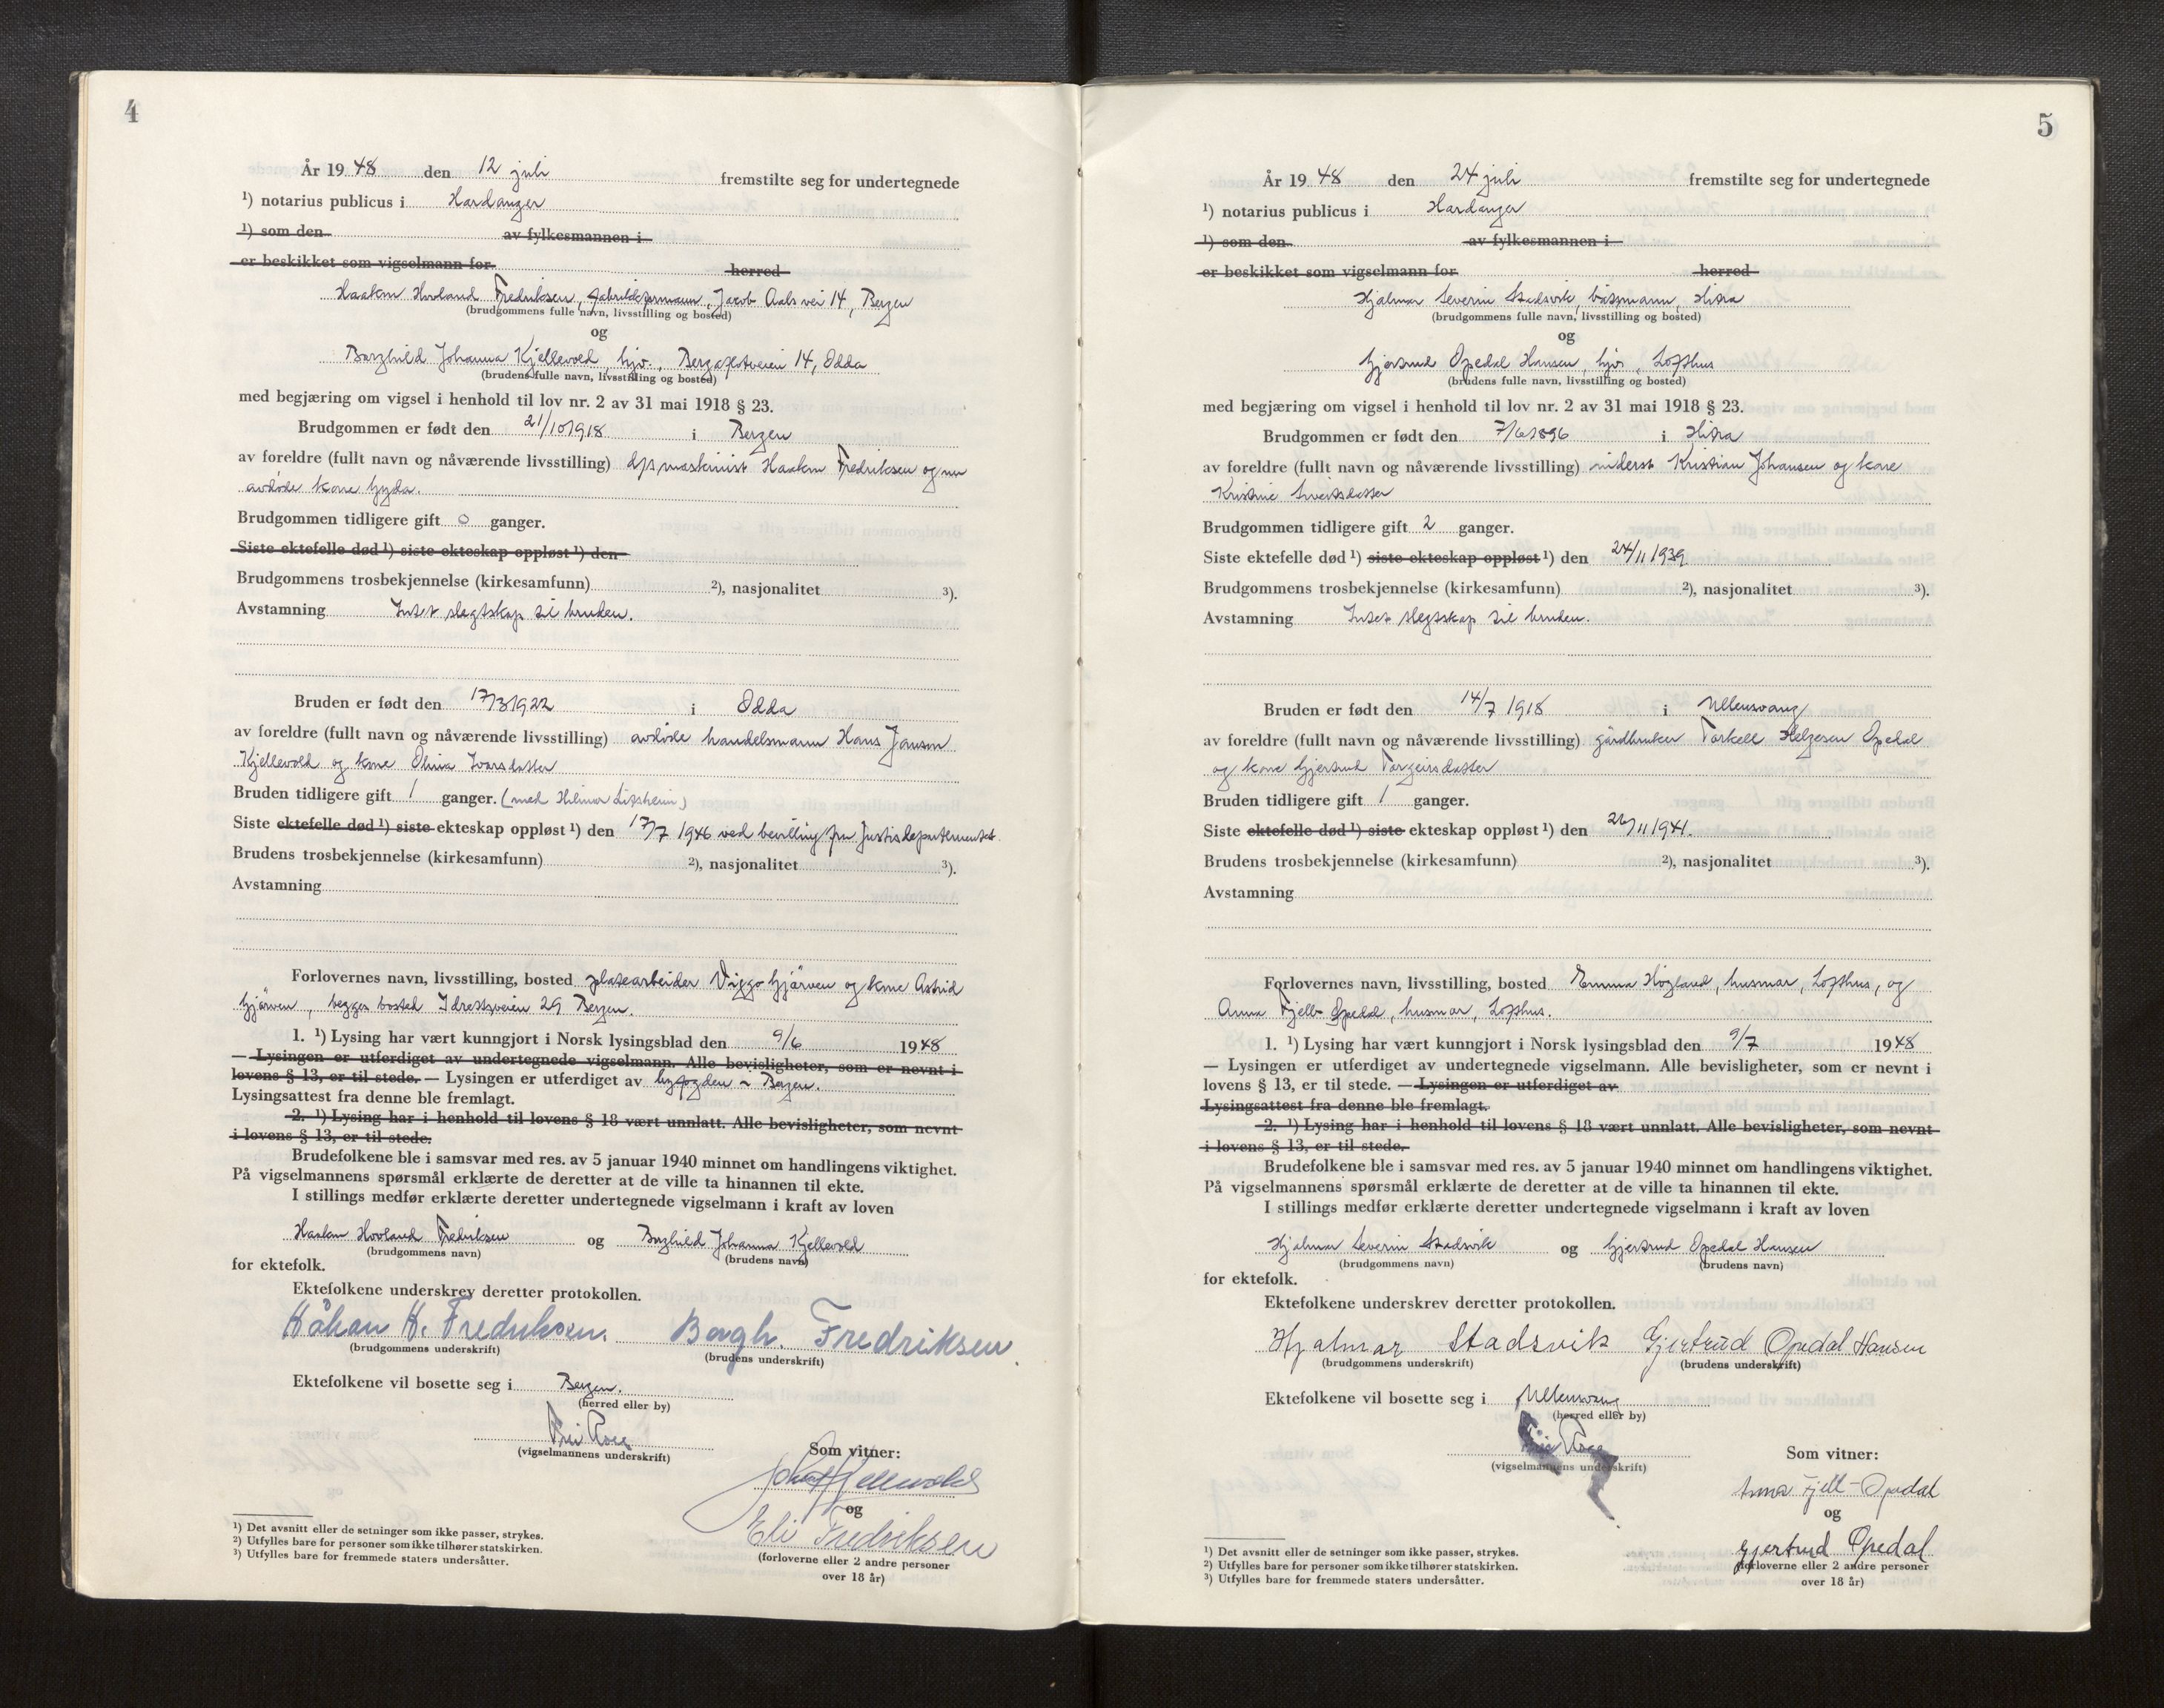 4
År 19 48 den 12 juli fremstilte seg for undertegnede
¹) notarius publicus i Hardanger
¹) som den av fylkesmannen i
er beskikket som vigselmann for herred
Haakon Hovland Fredriksen, Jacob Aals vei 14, Bergen
(brudgommens fulle navn, livsstilling og bosted)
og
Borghild Johanna Kjellevold, hjv., 14, Odda
(brudens fulle navn, livsstilling og bosted)
med begjæring om vigsel i henhold til lov nr. 2 av 31 mai 1918 § 23.
Brudgommen er født den 21/10 1918 i Bergen
av foreldre (fullt navn og nåværende livsstilling) d/s maskinist Haakon Fredriksen og nu
avdøde kone Gyda.
Brudgommen tidligere gift 0 ganger.
Siste ektefelle død ¹) siste ekteskap oppløst ¹) den
Brudgommens trosbekjennelse (kirkesamfunn) ²), nasjonalitet ³).
Avstamning Intet slegtskap til bruden.
Bruden er født den 17/3 1922 i Odda
av foreldre (fullt navn og nåværende livsstilling) avdøde handelsmann Hans Jansen
Kjellevold og kone Olina Ivarsdatter
Bruden tidligere gift 1 ganger. (med Hilmar Litsheim)
Siste ektefelle død ¹) siste ekteskap oppløst ¹) den 17/7 1946 ved bevilling fra Justisdepartementet.
Brudens trosbekjennelse (kirkesamfunn) ²), nasjonalitet ³).
Avstamning
Forlovernes navn, livsstilling, bosted platearbeider Viggo Gjärven og kone Astrid
Gjärven, begges bosted Idrettsveien 29 Bergen.
1. ¹) Lysing har vært kunngjort i Norsk lysingsblad den 9/6 1948
— Lysingen er utferdiget av undertegnede vigselmann. Alle bevisligheter, som er nevnt i
lovens § 13, er til stede. — Lysingen er utferdiget av byfogden i Bergen.
Lysingsattest fra denne ble fremlagt.
2. ¹) Lysing har i henhold til lovens § 18 vært unnlatt. Alle bevisligheter, som nevnt
i lovens § 13, er til stede.
Brudefolkene ble i samsvar med res. av 5 januar 1940 minnet om handlingens viktighet.
På vigselmannens spørsmål erklærte de deretter at de ville ta hinannen til ekte.
I stillings medfør erklærte deretter undertegnede vigselmann i kraft av loven
Haakon Hovland Fredriksen og Borghild Johanna Kjellevold
(brudgommens navn) (brudens navn)
for ektefolk.
Ektefolkene underskrev deretter protokollen.
Håkon H. Fredriksen. Borgh. Fredriksen
(brudgommens underskrift) (brudens underskrift)
Ektefolkene vil bosette seg i Bergen.
(herred eller by)
(vigselmannens underskrift)
Som vitner:
Kjellevold
og
Eli Fredriksen
(forloverne eller 2 andre personer
over 18 år)
¹) Det avsnitt eller de setninger som ikke passer, strykes.
²) Utfylles bare for personer som ikke tilhører statskirken.
³) Utfylles bare for fremmede staters undersåtter.
5
År 19 48 den 24 juli fremstilte seg for undertegnede
¹) notarius publicus i Hardanger
¹) som den av fylkesmannen i
er beskikket som vigselmann for herred
Hjalmar Severin Stadsvik, båtsmann, Hitra
(brudgommens fulle navn, livsstilling og bosted)
og
Gjertrud Opedal Hansen, hjv., Lofthus
(brudens fulle navn, livsstilling og bosted)
med begjæring om vigsel i henhold til lov nr. 2 av 31 mai 1918 § 23.
Brudgommen er født den 7/6 1896 i Hitra
av foreldre (fullt navn og nåværende livsstilling) inderst Kristian Johansen og kone
Kristine
Brudgommen tidligere gift 2 ganger.
Siste ektefelle død ¹) siste ekteskap oppløst ¹) den 24/11 1939
Brudgommens trosbekjennelse (kirkesamfunn) ²), nasjonalitet ³).
Avstamning Intet slegtskap til bruden.
Bruden er født den 14/7 1918 i Ullensvang
av foreldre (fullt navn og nåværende livsstilling) gårdbruker Torkell Helgesen Opedal
og kone Gjertrud Torgeirsdatter
Bruden tidligere gift 1 ganger.
Siste ektefelle død ¹) siste ekteskap oppløst ¹) den 26/11 1941.
Brudens trosbekjennelse (kirkesamfunn) ²), nasjonalitet ³).
Avstamning
Forlovernes navn, livsstilling, bosted Emma Høgland, husmor, Lofthus, og
Anna Fjell-Opedal, husmor, Lofthus.
1. ¹) Lysing har vært kunngjort i Norsk lysingsblad den 9/7 1948
— Lysingen er utferdiget av undertegnede vigselmann. Alle bevisligheter, som er nevnt i
lovens § 13, er til stede. — Lysingen er utferdiget av
Lysingsattest fra denne ble fremlagt.
2. ¹) Lysing har i henhold til lovens § 18 vært unnlatt. Alle bevisligheter, som nevnt
i lovens § 13, er til stede.
Brudefolkene ble i samsvar med res. av 5 januar 1940 minnet om handlingens viktighet.
På vigselmannens spørsmål erklærte de deretter at de ville ta hinannen til ekte.
I stillings medfør erklærte deretter undertegnede vigselmann i kraft av loven
Hjalmar Severin Stadsvik og Gjertrud Opedal Hansen
(brudgommens navn) (brudens navn)
for ektefolk.
Ektefolkene underskrev deretter protokollen.
Hjalmar Stadsvik Gjertrud Opedal Hansen
(brudgommens underskrift) (brudens underskrift)
Ektefolkene vil bosette seg i Ullensvang
(herred eller by)
(vigselmannens underskrift)
Som vitner:
Anna Fjell-Opedal
og
Gjertrud Opedal
(forloverne eller 2 andre personer
over 18 år)
¹) Det avsnitt eller de setninger som ikke passer, strykes.
²) Utfylles bare for personer som ikke tilhører statskirken.
³) Utfylles bare for fremmede staters undersåtter.